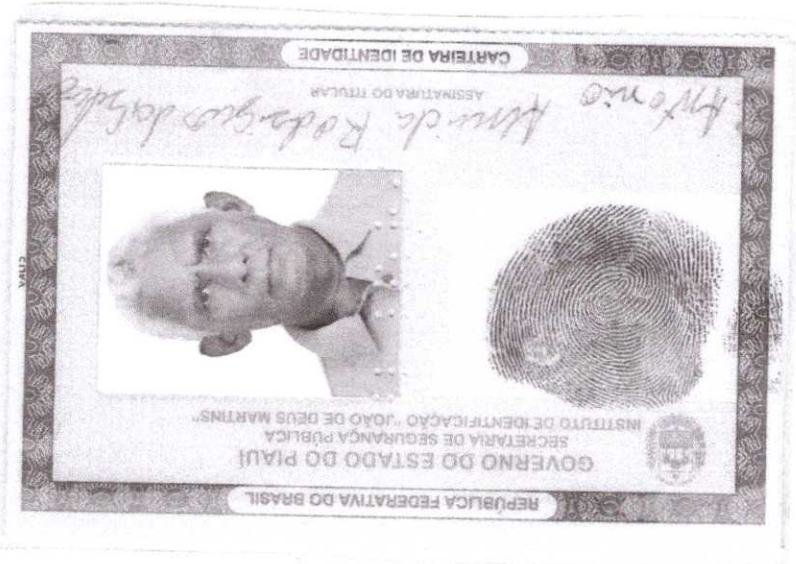 REPÚBLICA FEDERATIVA DO BRASIL
GOVERNO DO ESTADO DO PIAUÍ
SECRETARIA DE SEGURANÇA PÚBLICA
INSTITUTO DE IDENTIFICAÇÃO "JOÃO DE DEUS MARTINS"
Antonio Rodrigues da
ASSINATURA DO TITULAR
CARTEIRA DE IDENTIDADE